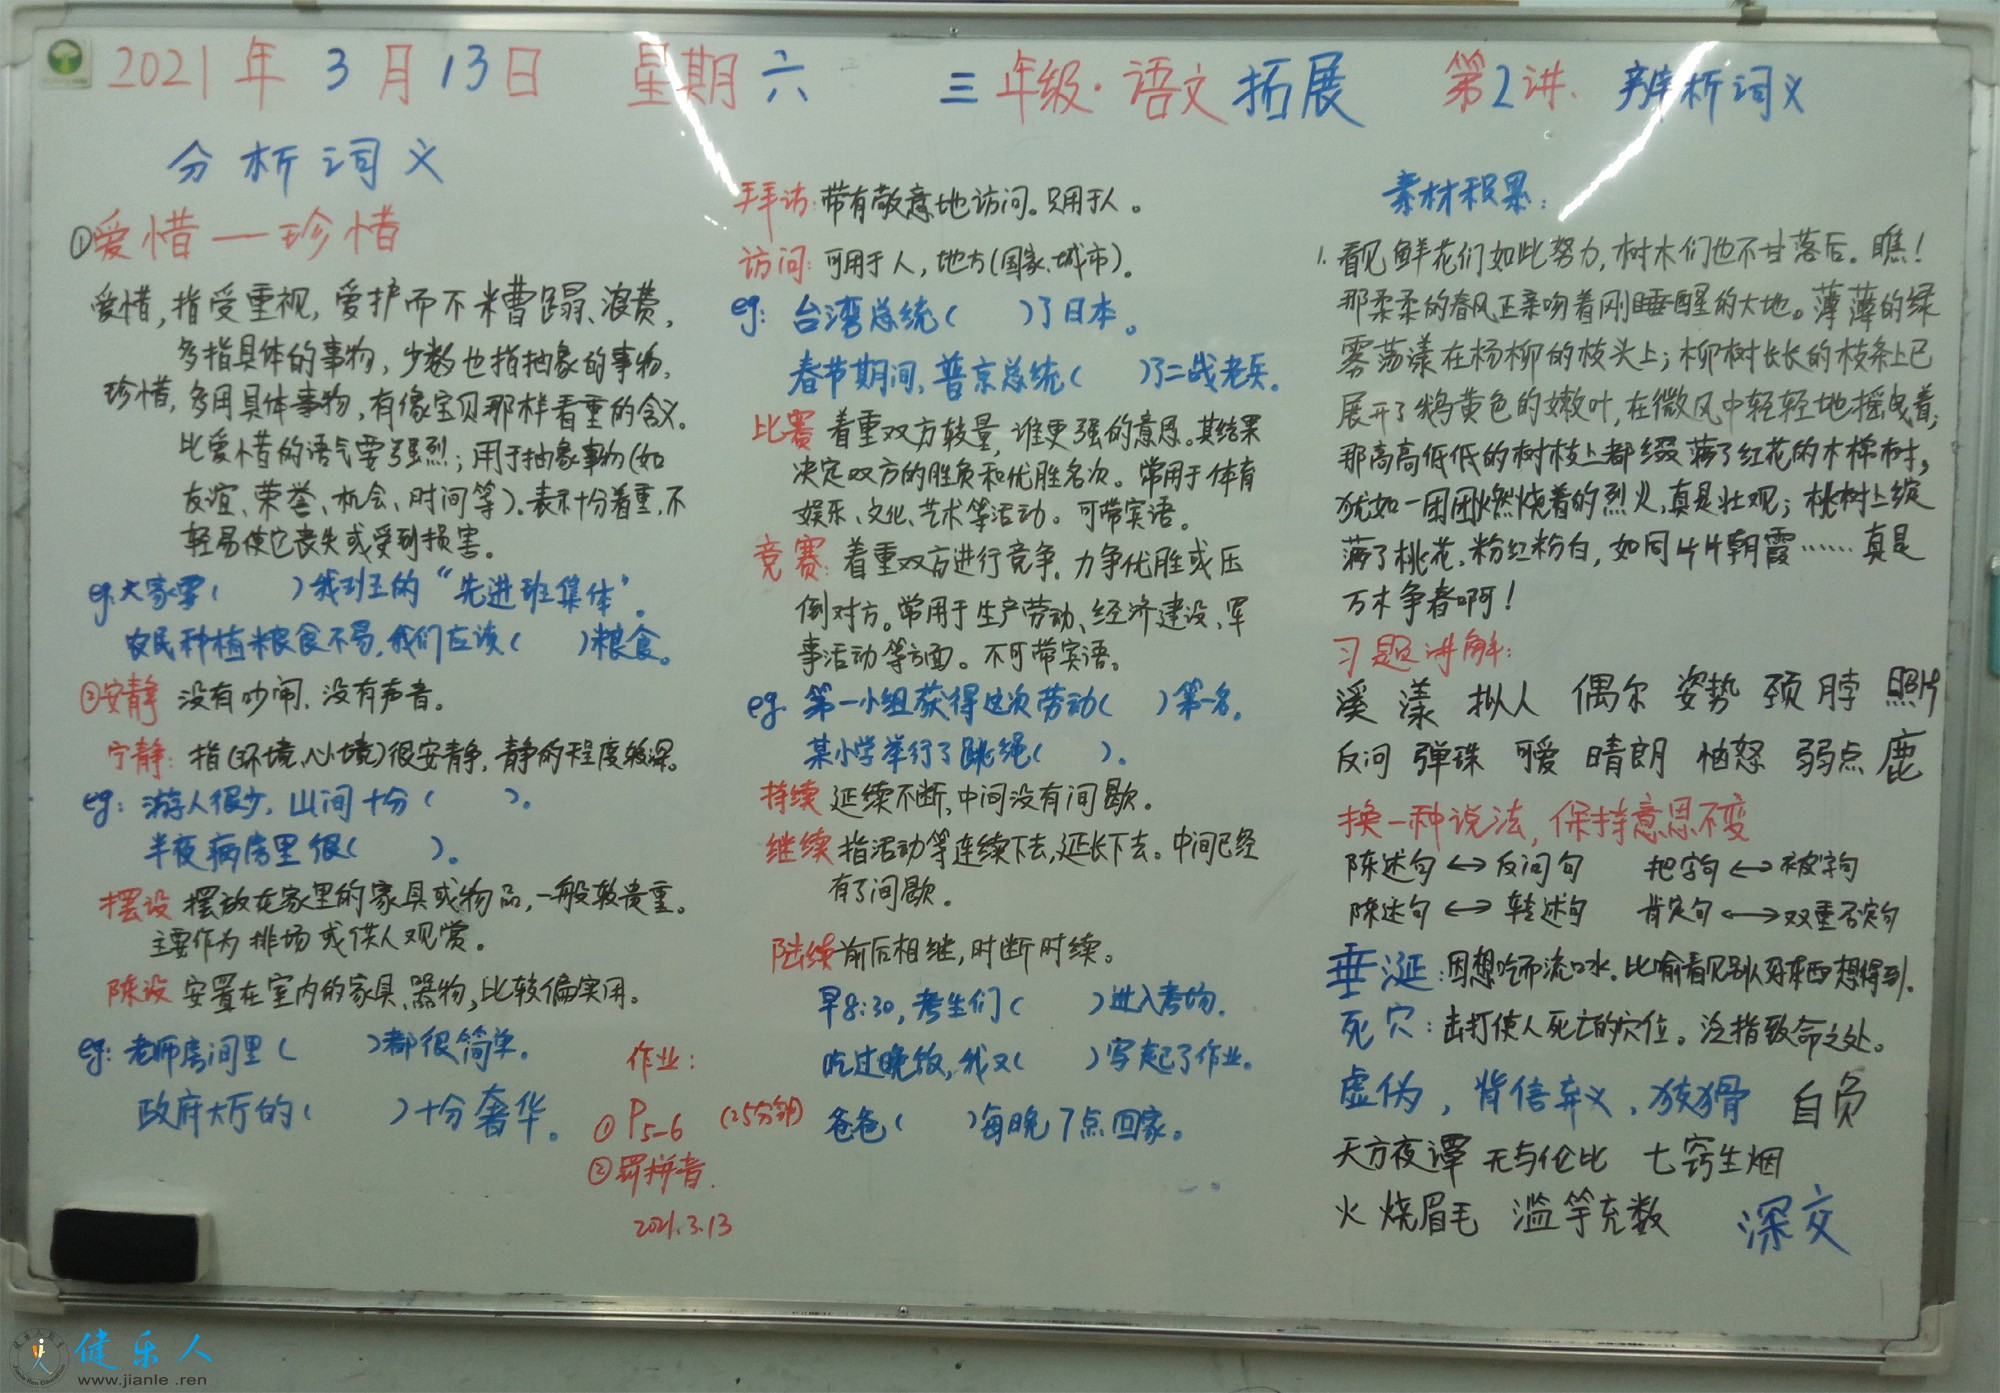 2021年3月13日 星期六 三年级·语文拓展 第2讲. 辨析词义
分析词义
①爱惜——珍惜
爱惜,指受重视,爱护而不糟蹋、浪费,
多指具体的事物,少数也指抽象的事物.
珍惜,多用具体事物,有像宝贝那样看重的含义.
比爱惜的语气要强烈;用于抽象事物(如
友谊、荣誉、机会、时间等).表示十分着重,不
轻易使它丧失或受到损害。
eg.大家要( )我班的“先进班集体”.
农民种植粮食不易,我们应该( )粮食。
②安静 没有吵闹、没有声音。
宁静:指(环境、心境)很安静,静的程度较深。
eg:游人很少,山间十分( ).
半夜病房里很( )。
摆设 摆放在家里的家具或物品,一般较贵重。
主要作为排场或供人观赏。
陈设 安置在室内的家具、器物,比较偏实用。
eg:老师房间里( )都很简单.
政府大厅的( )十分奢华。
作业:
①P5-6 (25分钟)
②罚拼音.
2021.3.13
拜访:带有敬意地访问。只用于人。
访问:可用于人,地方(国家、城市).
eg:台湾总统( )了日本。
春节期间,普京总统( )了二战老兵.
比赛 着重双方较量,谁更强的意思。其结果
决定双方的胜负和优胜名次。常用于体育
娱乐、文化、艺术等活动。可带宾语。
竞赛:着重双方进行竞争,力争优胜或压
倒对方。常用于生产劳动、经济建设、军
事活动等方面。不可带宾语。
eg.第一小组获得这次劳动( )第一名.
某小学举行了跳绳( ).
持续 延续不断,中间没有间歇.
继续 指活动等连续下去,延长下去。中间已经
有了间歇.
陆续 前后相继,时断时续。
早8:30,考生们( )进入考场.
吃过晚饭,我又( )写起了作业.
爸爸( )每晚7点回家。
素材积累:
1.看见鲜花们如此努力,树木们也不甘落后。瞧!
那柔柔的春风正亲吻着刚睡醒的大地。薄薄的绿
雾荡漾在杨柳的枝头上;柳树长长的枝条上已
展开了鹅黄色的嫩叶,在微风中轻轻地摇曳着;
那高高低低的树枝上都缀满了红花的木棉树,
犹如一团团燃烧着的烈火,真是壮观;桃树上绽
满了桃花,粉红粉白,如同片片朝霞……真是
万木争春啊!
习题讲解:
溪 漾 拟人 偶尔 姿势 颈 脖 照片
反问 弹珠 可爱 晴朗 恼怒 弱点 鹿
换一种说法,保持意思不变
陈述句↔反问句 把字句↔被字句
陈述句↔转述句 肯定句↔双重否定句
垂涎:因想吃而流口水.比喻看见别人好东西想得到.
死穴:击打使人死亡的穴位。泛指致命之处。
虚伪,背信弃义,狡猾 自负
天方夜谭 无与伦比 七窍生烟
火烧眉毛 滥竽充数 深交
健乐人
www.jianle.ren